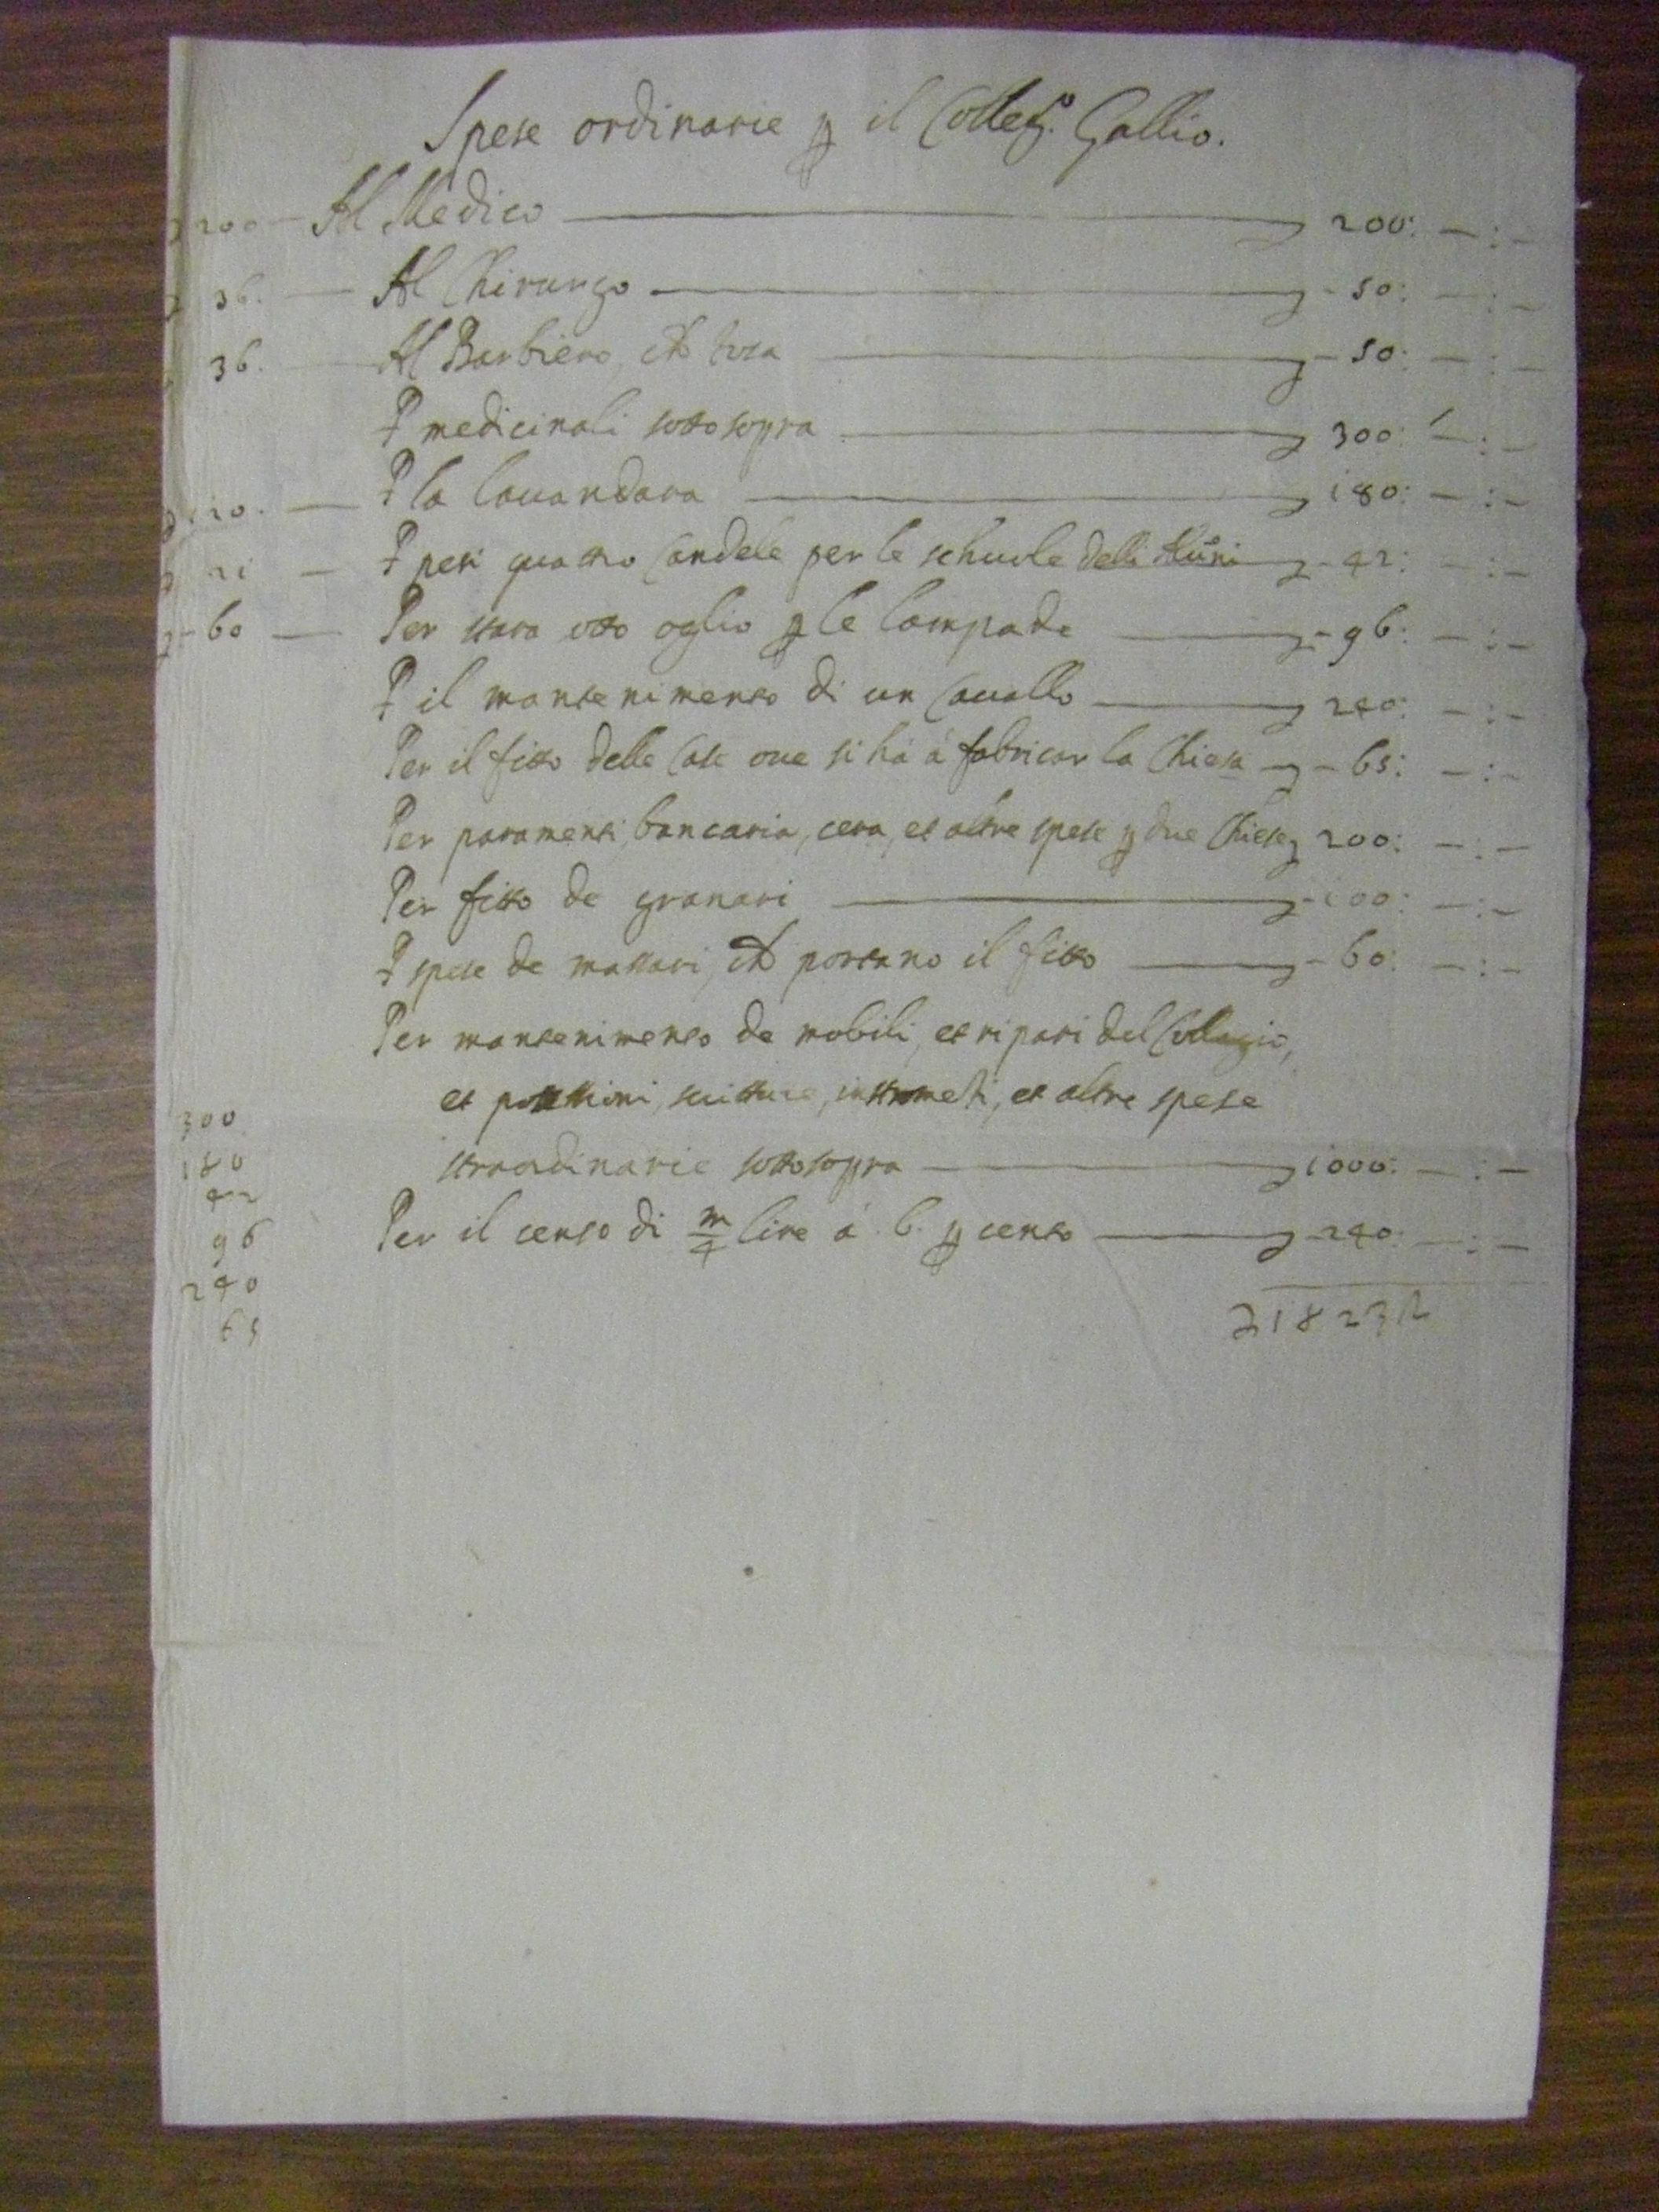 Spese ordinarie p il Colleg.o Gallio.
200 — Al Medico — 200: — : —
36. — Al Chirurgo — 50: — : —
36. — Al Barbiero, ch tosa — 50: — : —
P medicinali sottosopra — 300: — : —
120. — P la lauandara — 180: — : —
21 — P pesi quattro Candele per le schuole delli Alũni — 42: — : —
60 — Per stara otto oglio p le lampade — 96: — : —
P il mantenimento di un Cauallo — 240: — : —
Per il fitto delle Case oue si ha á fabricar la Chiesa — 65: — : —
Per paramenti, bancaria, cera, et altre spese p due Chiese 200: — : —
Per fitto de granari — 100: — : —
P spese de massari, ch portano il fitto — 60: — : —
Per mantenimento de mobili, et ripari del Collegio,
et scritture, instrometi, et altre spese
300
straordinarie sottosopra — 1000: — : —
180
42
Per il censo di m/4 lire á 6. p cento — 240: — : —
96
240
65